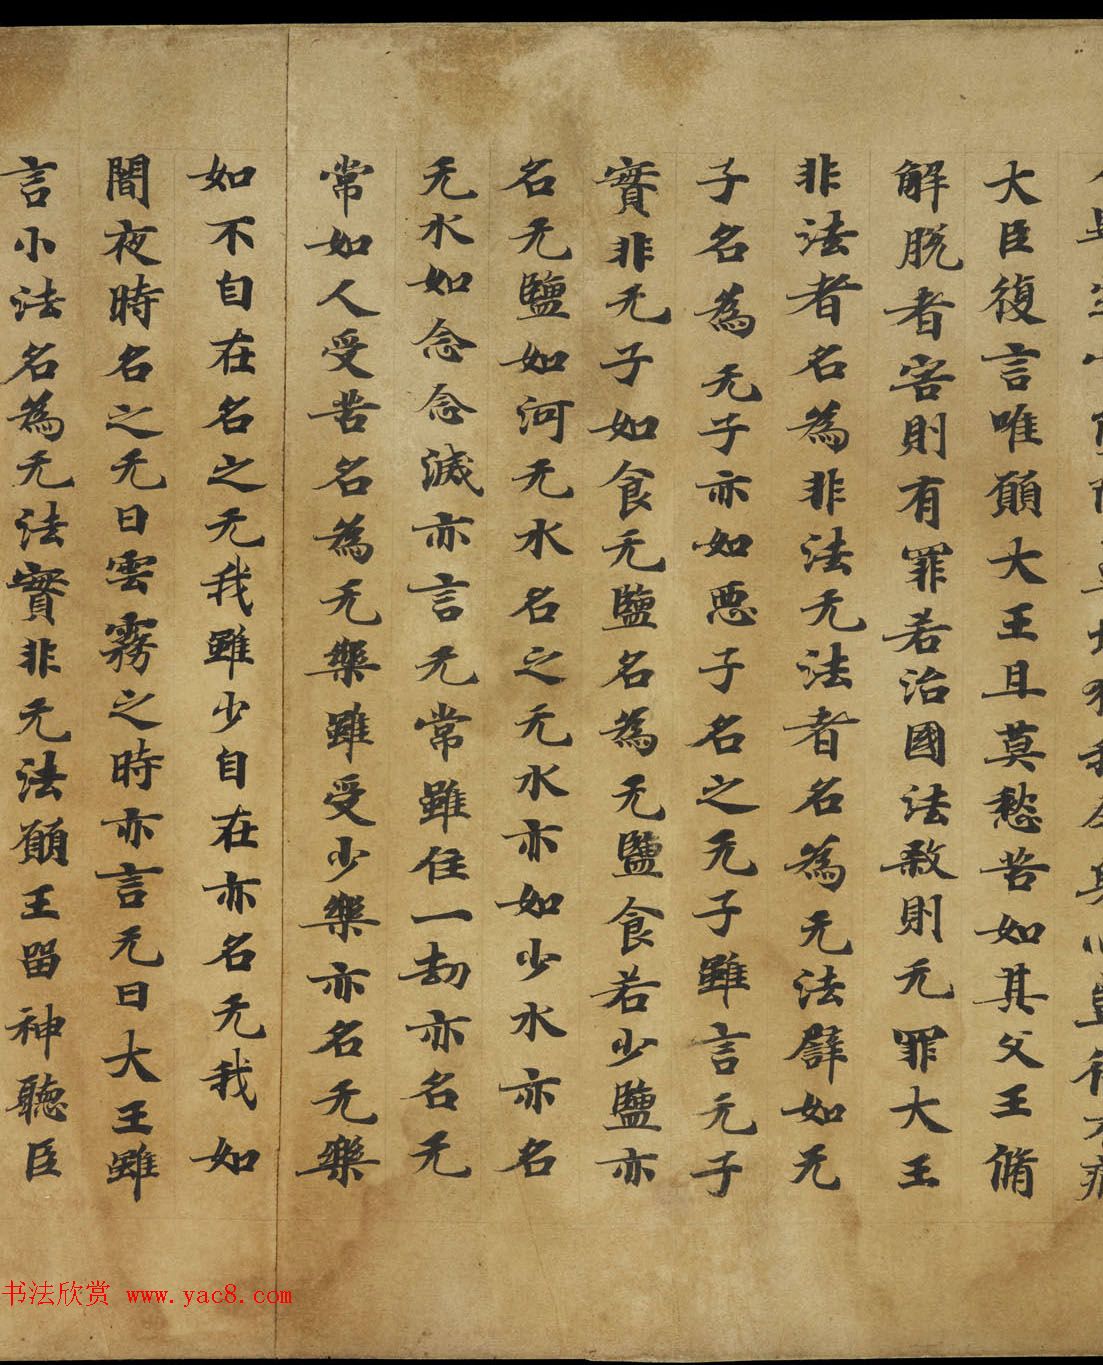 大臣復言唯願大王且莫愁苦如其父王脩
解脫者害則有罪若治國法敘則无罪大王
非法者名為非法无法者名為无法譬如无
子名為无子亦如惡子名之无子雖言无子
實非无子如食无鹽名為无鹽食若少鹽亦
名无鹽如河无水名之无水亦如少水亦名
无水如念念滅亦言无常雖住一劫亦名无
常如人受苦名為无樂雖受少樂亦名无樂
如不自在名之无我雖少自在亦名无我如
闇夜時名之无日雲霧之時亦言无日大王雖
言小法名為无法實非无法願王留神聽臣
书法欣赏 www.yac8.com